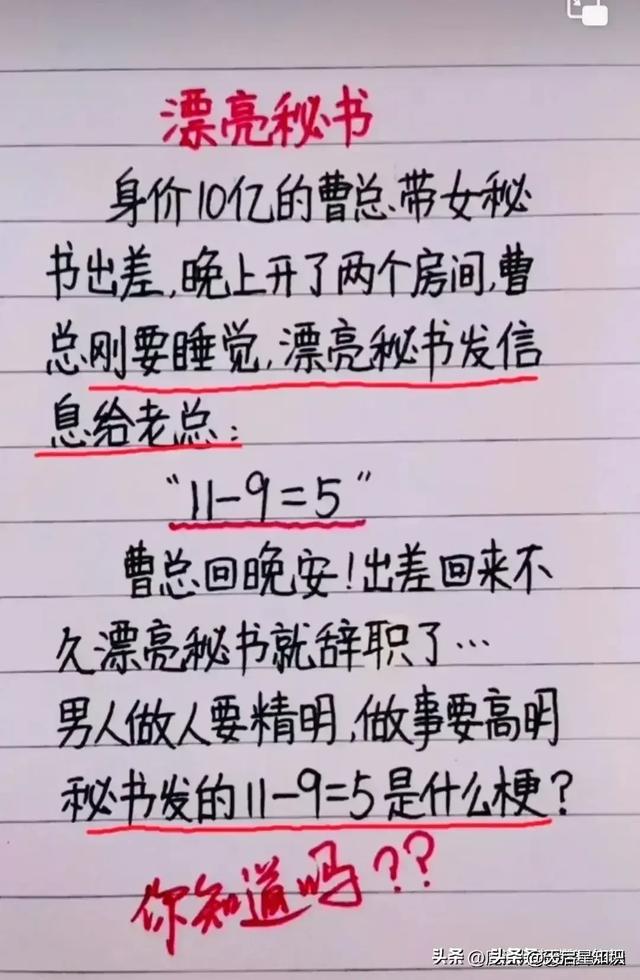 漂亮秘书
身价10亿的曹总带女秘
书出差,晚上开了两个房间,曹
总刚要睡觉,漂亮秘书发信
息给老总:
"11-9=5"
曹总回晚安!出差回来不
久漂亮秘书就辞职了…
男人做人要精明,做事要高明
秘书发的11-9=5是什么梗?
你知道吗??